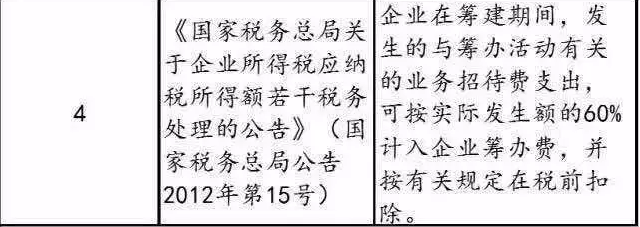 4
《国家税务总局关
于企业所得税应纳
税所得额若干税务
处理的公告》（国
家税务总局公告
2012年第15号）
企业在筹建期间，发
生的与筹办活动有关
的业务招待费支出，
可按实际发生额的60%
计入企业筹办费，并
按有关规定在税前扣
除。